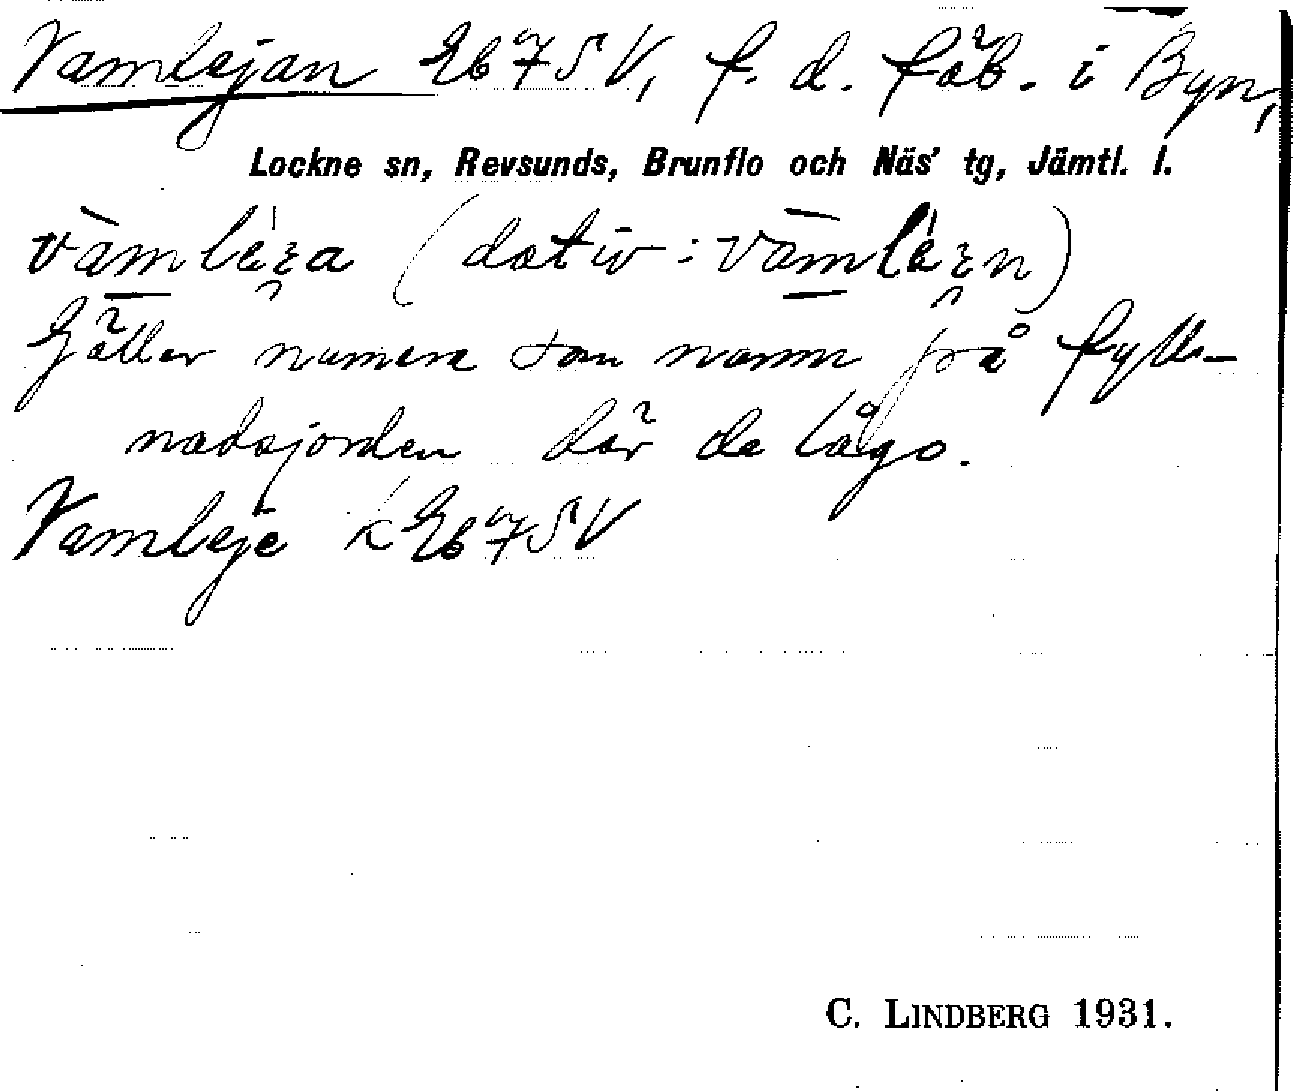 Vamlejan Eb 75 V, f. d. fäb. i Byn,
Lockne sn, Revsunds, Brunflo och Näs' tg, Jämtl. l.
(dativ:
Gäller numera som namn på fytt-
nadsjorden där de lågo.
Vamleje k Eb 75 V
C. LINDBERG 1931.